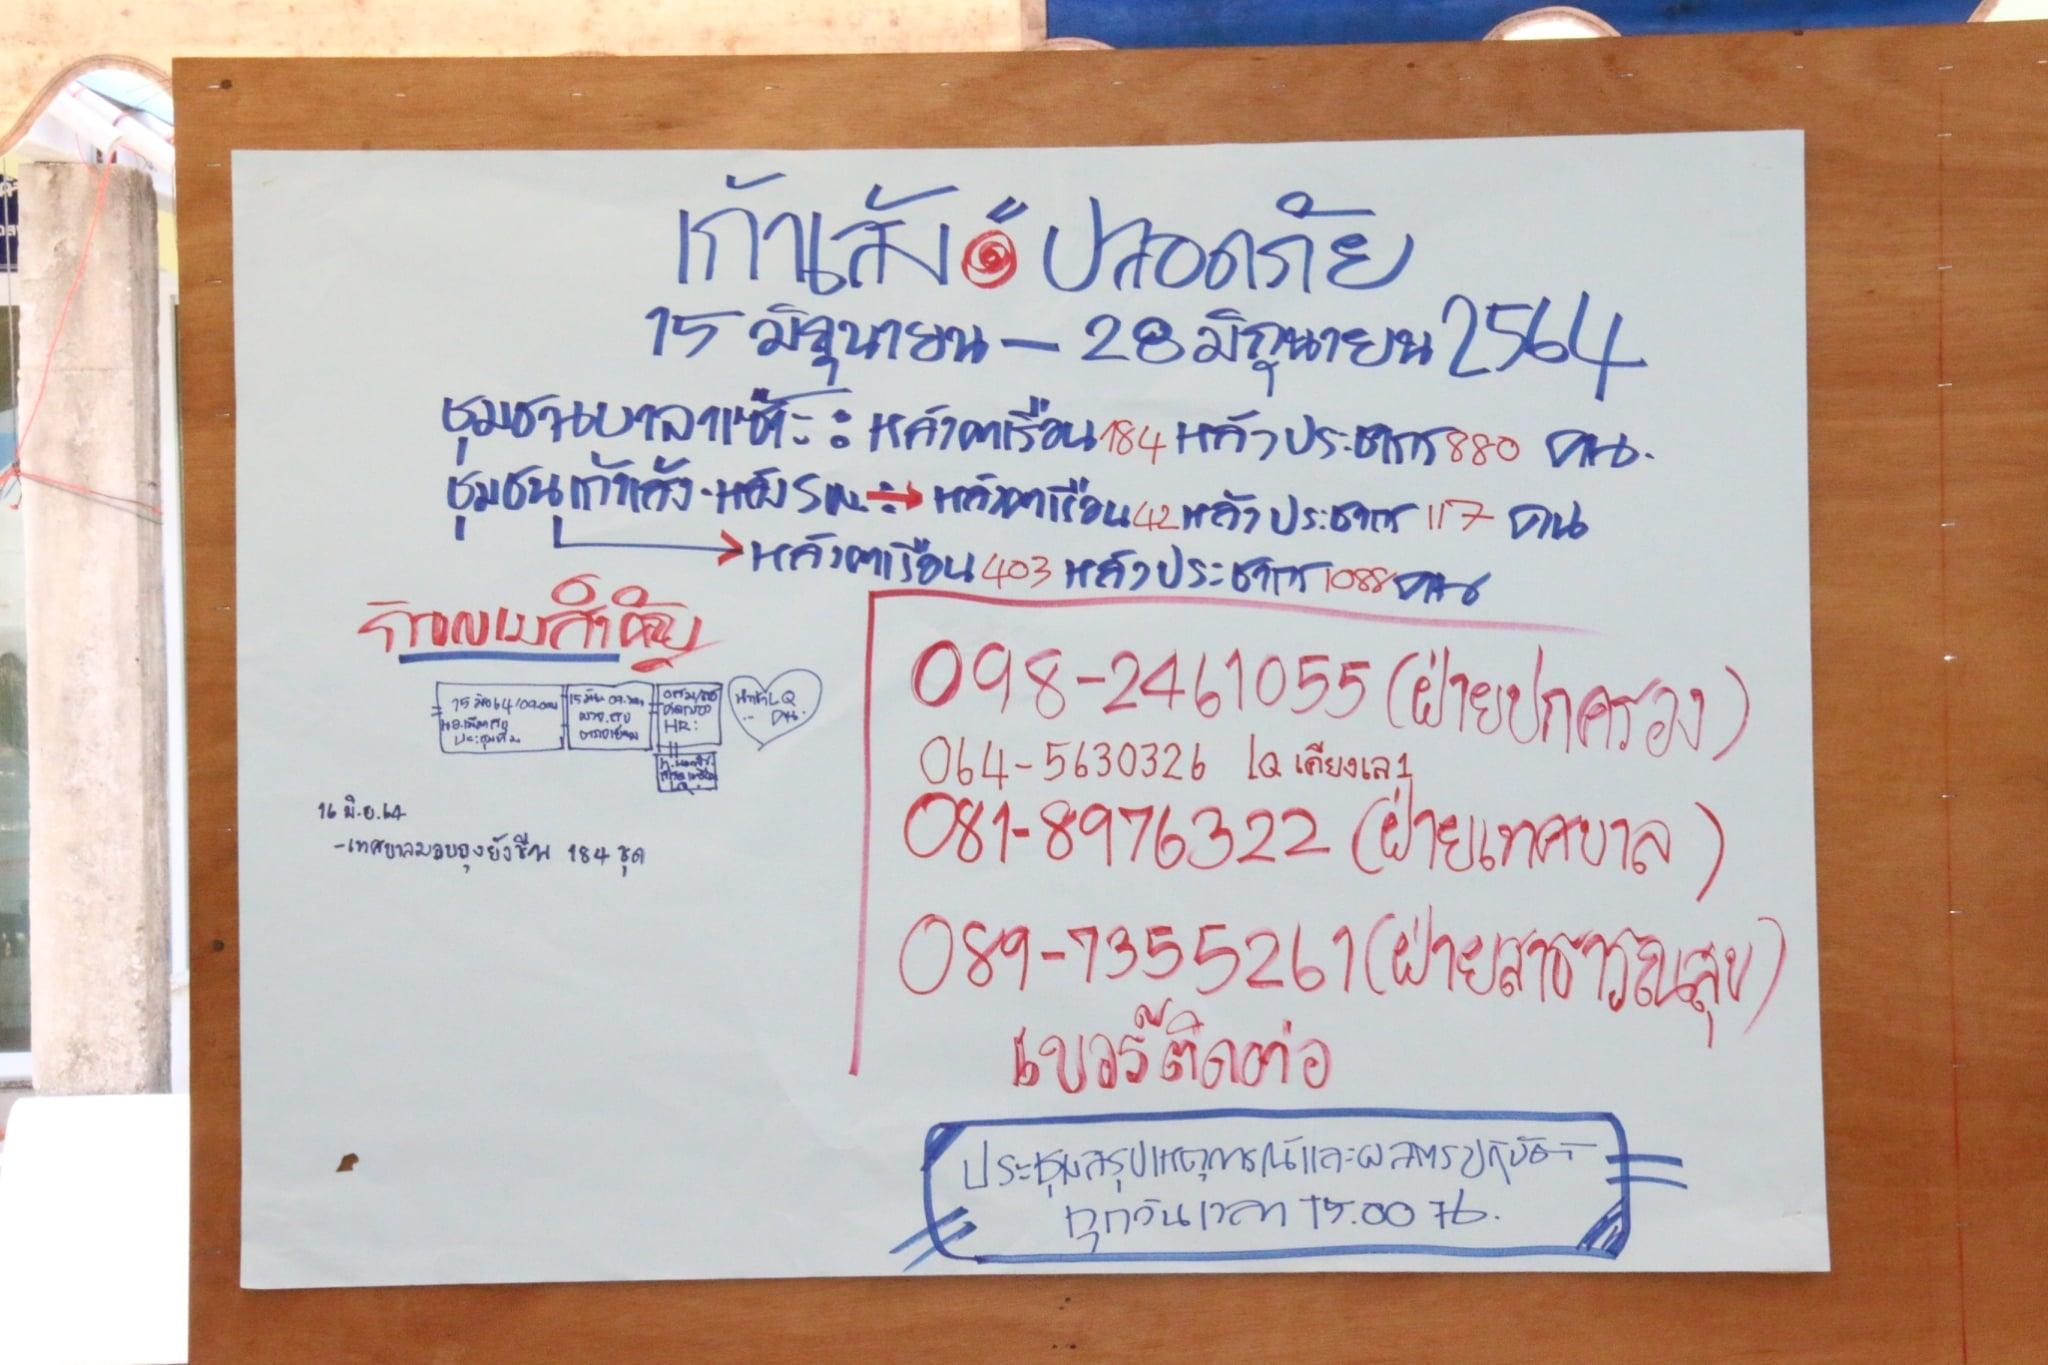 เก้าเส้ง ปลอดภัย
15 มิถุนายน - 28 มิถุนายน 2564
ชุมชนบาลาเซ๊าะ : หลังคาเรือน 184 หลัง ประชากร 880 คน.
ชุมชนเก้าเส้ง. หลัง รพ. : → หลังคาเรือน 42 หลัง ประชากร 117 คน
→ หลังคาเรือน 403 หลัง ประชากร 1088 คน
สำคัญ
15 มิย 64/09.00น
ประชุมทีม
15 มิย 09.30น
HR:
LQ
คน.
LQ.
16 มิ.ย. 64
- เทศบาลมอบถุงยังชีพ 184 ชุด
098-2461055 (ฝ่ายปกครอง)
064-5630326 LQ เคียงเล 1
081-8976322 (ฝ่ายเทศบาล)
089-7355261 (ฝ่ายสาธารณสุข)
เบอร์ติดต่อ
ประชุมสรุปเหตุการณ์และผลการปฏิบัติ
ทุกวันเวลา 15.00 น.